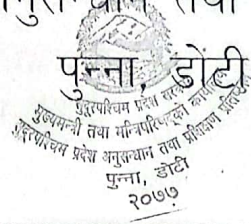 अनुसन्धान तथा
पुन्ना, डोटी
सुदूरपश्चिम प्रदेश सरकार
मुख्यमन्त्री तथा मन्त्रिपरिषद्को कार्यालय
सुदूरपश्चिम प्रदेश अनुसन्धान तथा प्रशिक्षण प्रतिष्ठान
पुन्ना, डोटी
२०७७